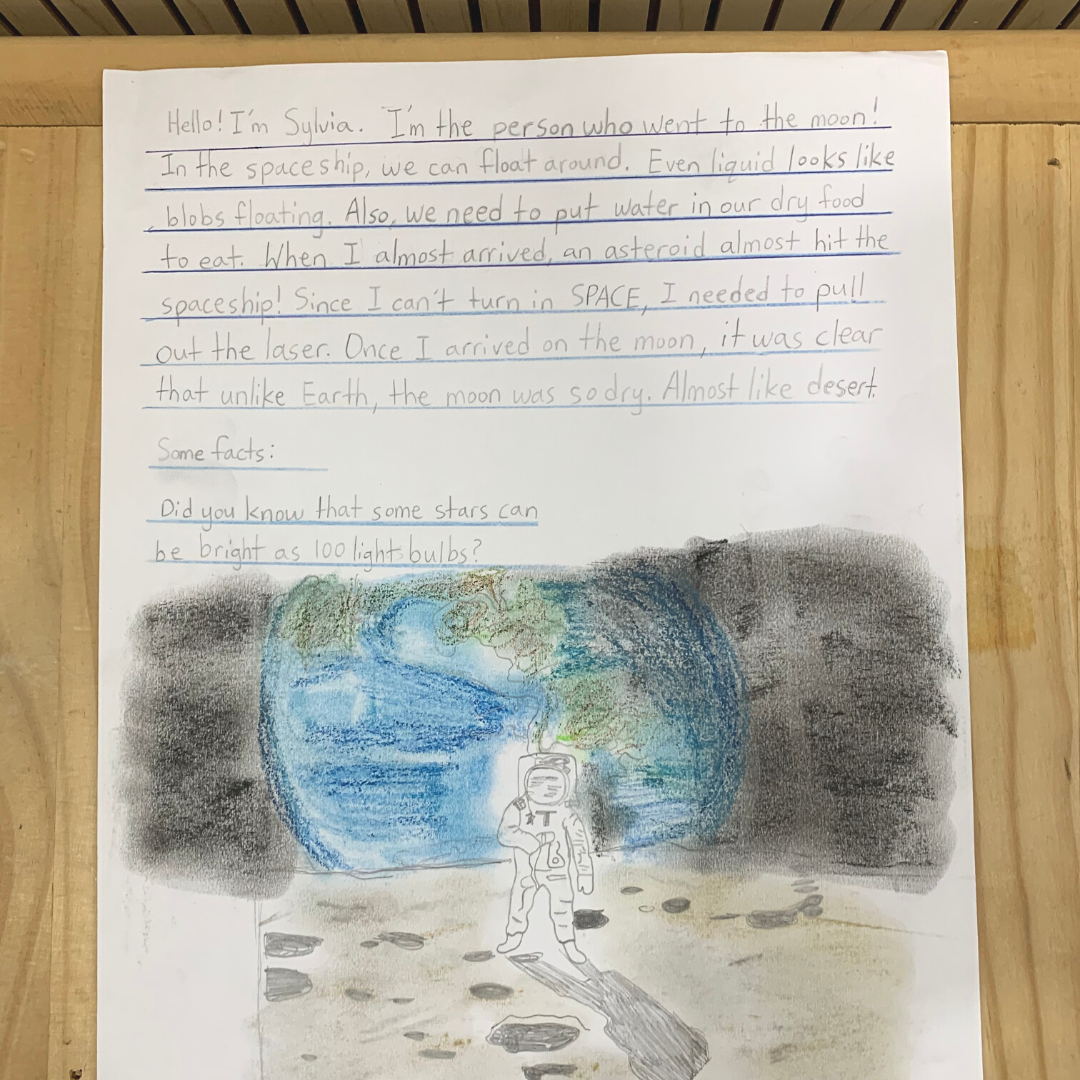 Hello! I'm Sylvia. I'm the person who went to the moon!
In the spaceship, we can float around. Even liquid looks like
blobs floating. Also, we need to put water in our dry food
to eat. When I almost arrived, an asteroid almost hit the
spaceship! Since I can't turn in SPACE, I needed to pull
out the laser. Once I arrived on the moon, it was clear
that unlike Earth, the moon was so dry. Almost like desert.
Some facts:
Did you know that some stars can
be bright as 100 lights bulbs?